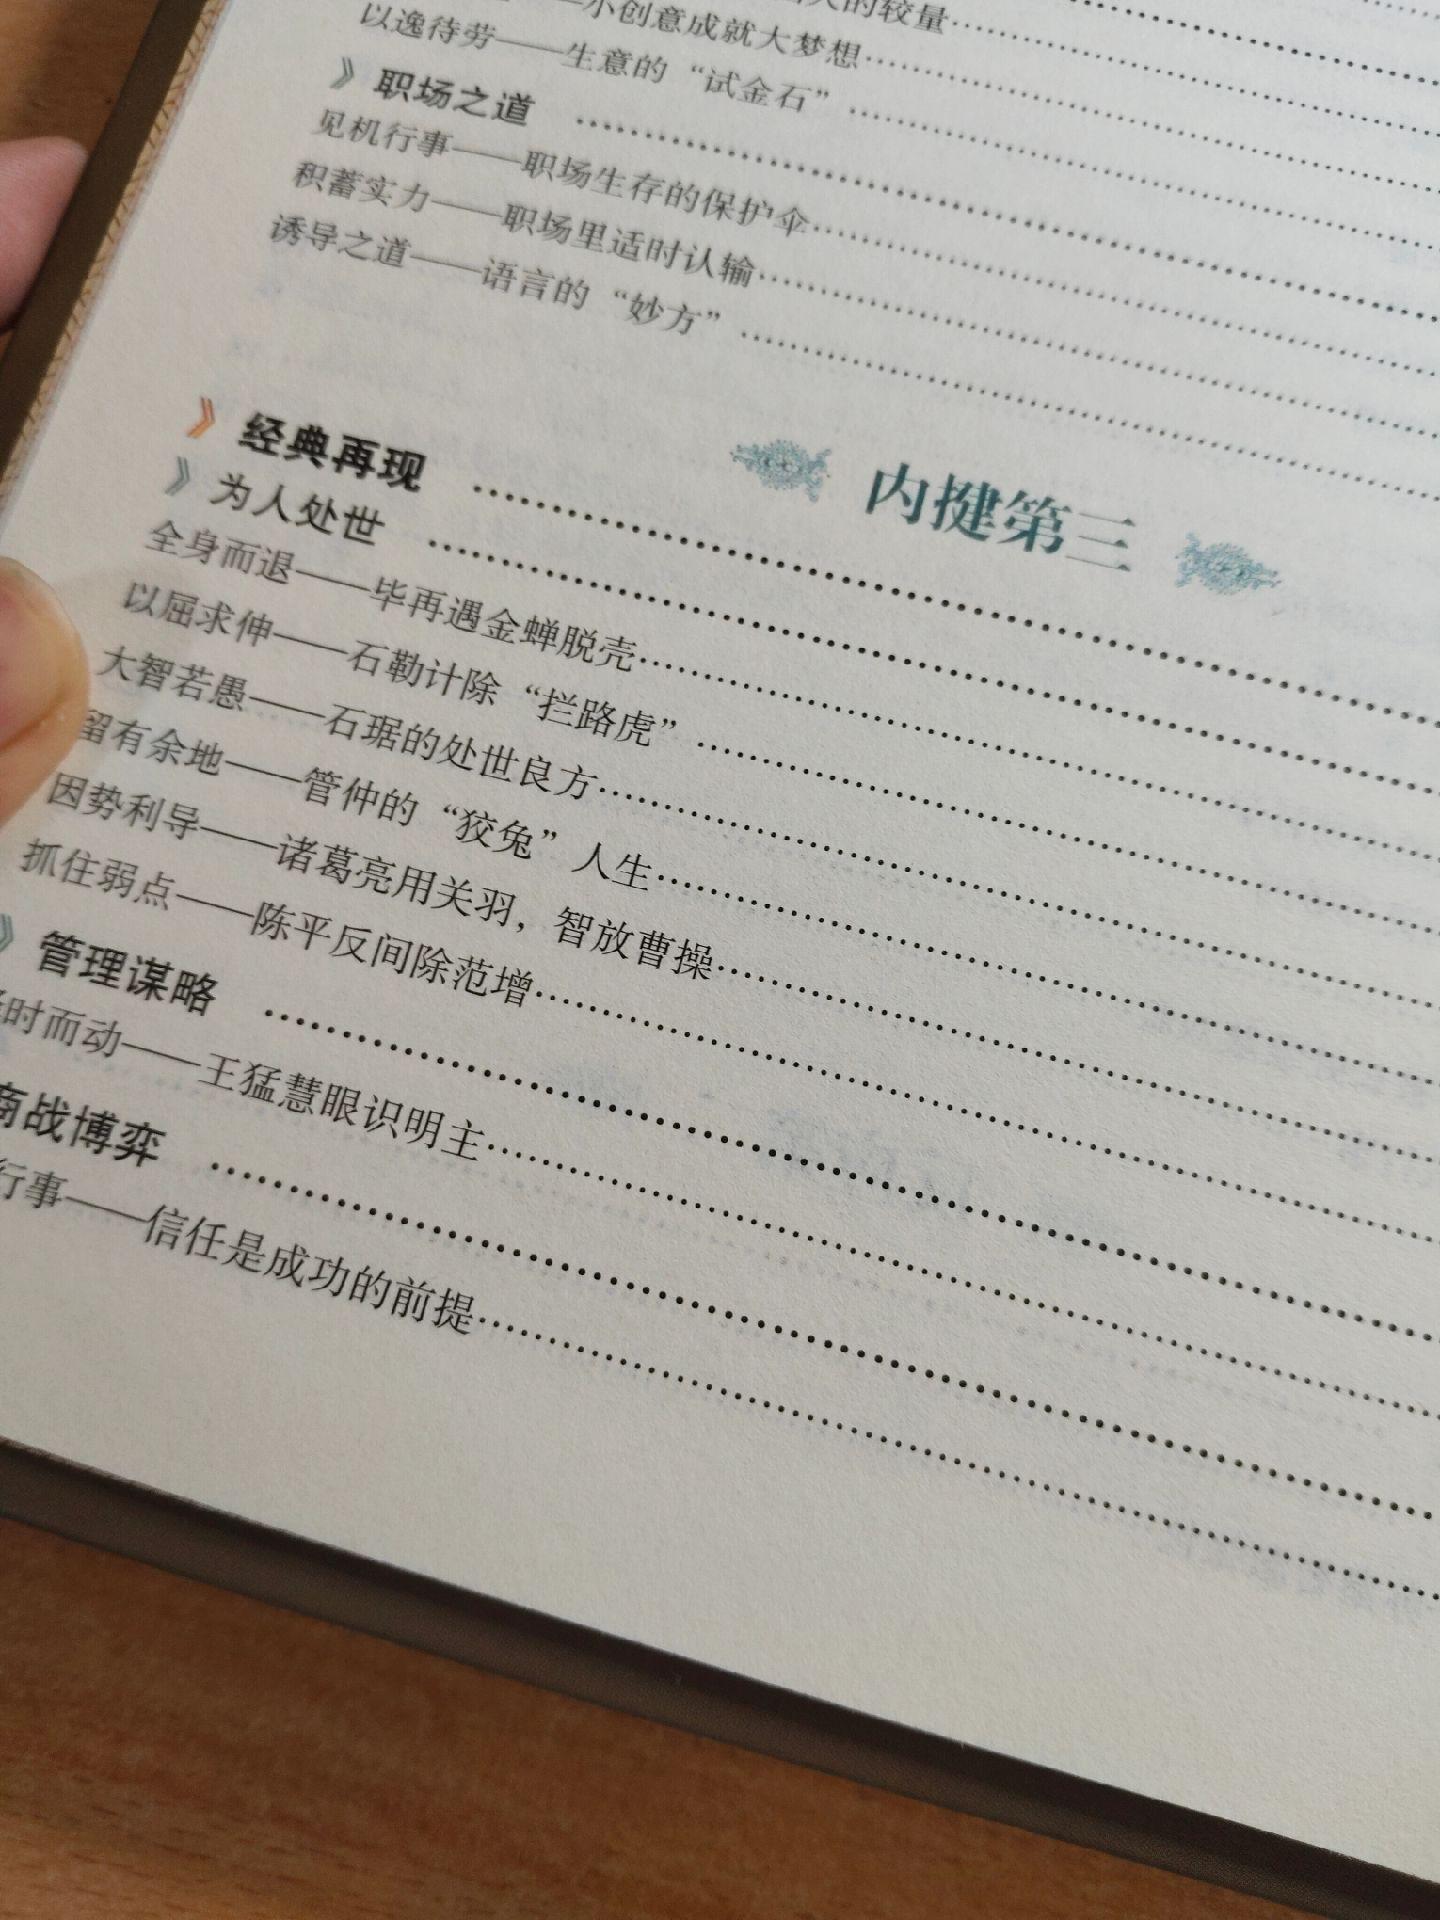 的较量
小创意成就大梦想
以逸待劳——生意的“试金石”
》职场之道
见机行事——职场生存的保护伞
积蓄实力——职场里适时认输
诱导之道——语言的“妙方”
内揵第三
》经典再现
》为人处世
全身而退——毕再遇金蝉脱壳
以屈求伸——石勒计除“拦路虎”
大智若愚——石琚的处世良方
留有余地——管仲的“狡兔”人生
因势利导——诸葛亮用关羽，智放曹操
抓住弱点——陈平反间除范增
》管理谋略
时而动——王猛慧眼识明主
商战博弈
行事——信任是成功的前提